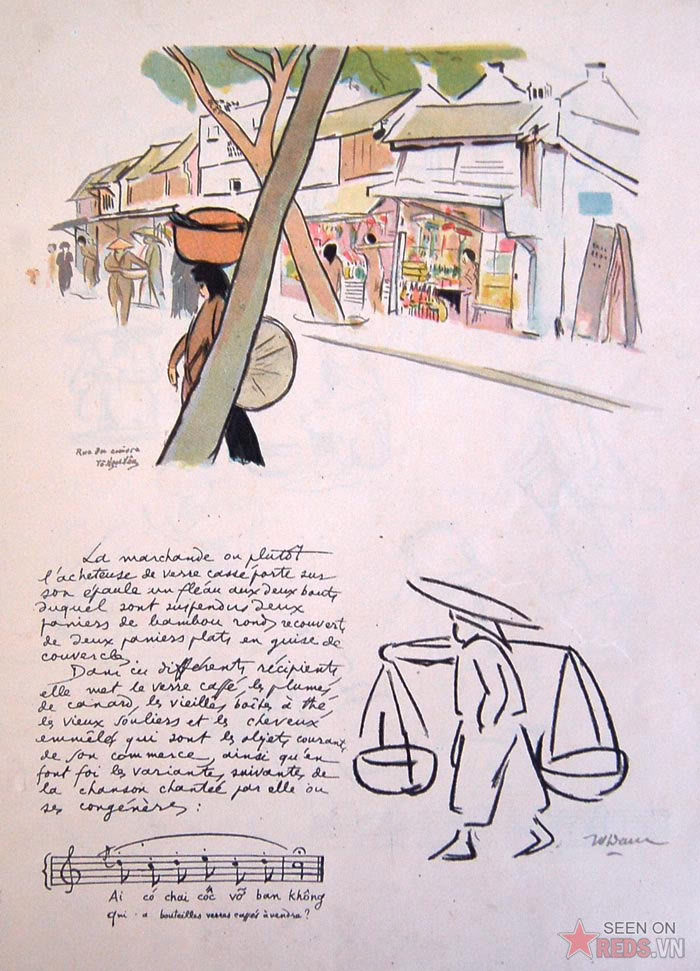 Rue du cuivre
Tô Ngọc Vân
La marchande ou plutôt
l'acheteuse de verre cassé porte sur
son épaule un fléau aux deux bouts
duquel sont suspendus deux
paniers de bambou ronds recouverts
de deux paniers plats en guise de
couvercles.
Dans ces différents récipients
elle met le verre cassé, les plumes
de canard, les vieilles boîtes à thé
les vieux souliers et les cheveux
emmêlés qui sont les objets courants
de son commerce, ainsi qu'en
font foi les variantes suivantes de
la chanson chantée par elle ou
ses congénères :
Ai có chai cốc vỡ ban không
qui a bouteilles verres cassés à vendre ?
SEEN ON
REDS.VN